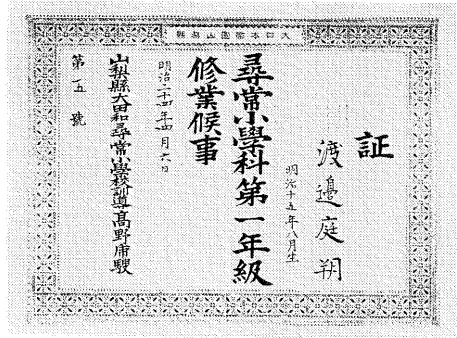 大日本帝國山梨縣
証
渡邉庭朔
明治十五年八月生
尋常小學科第一年級
修業候事
明治二十四年四月六日
山梨縣大田和尋常小學校訓導高野席駿
第一五號